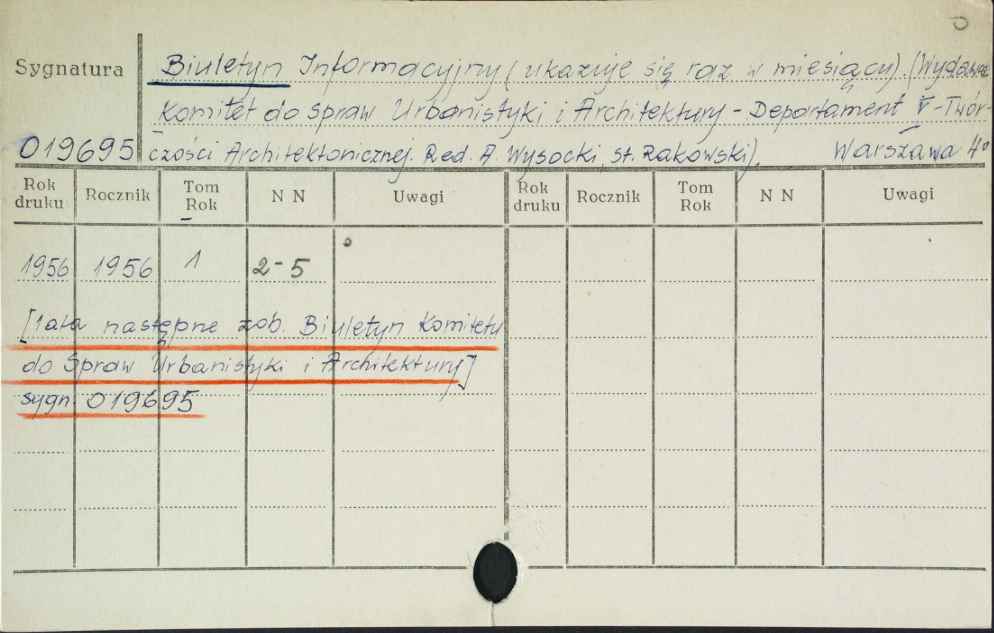 Sygnatura
Biuletyn Informacyjny (ukazuje się raz w miesiącu). (Wydawca
Komitet do spraw Urbanistyki i Architektury - Departament V - Twór-
019695 czości Architektonicznej. Red. A. Wysocki, St. Rakowski). Warszawa 4°
Rok druku Rocznik Tom Rok N N Uwagi Rok druku Rocznik Tom Rok N N Uwagi
1956 1956 1 2-5
[lata następne zob. Biuletyn Komitetu
do Spraw Urbanistyki i Architektury]
sygn. 019695